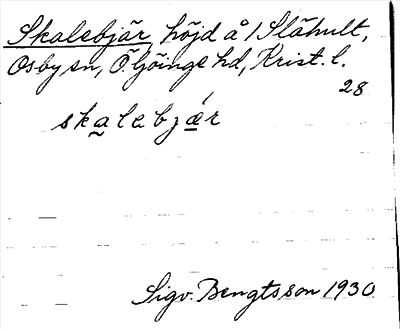 Skalebjär, höjd å 1 Slähult,
Osby sn, Ö. Göinge hd, Krist. l.
28
skalebjǽr
Sigv. Bengtsson 1930